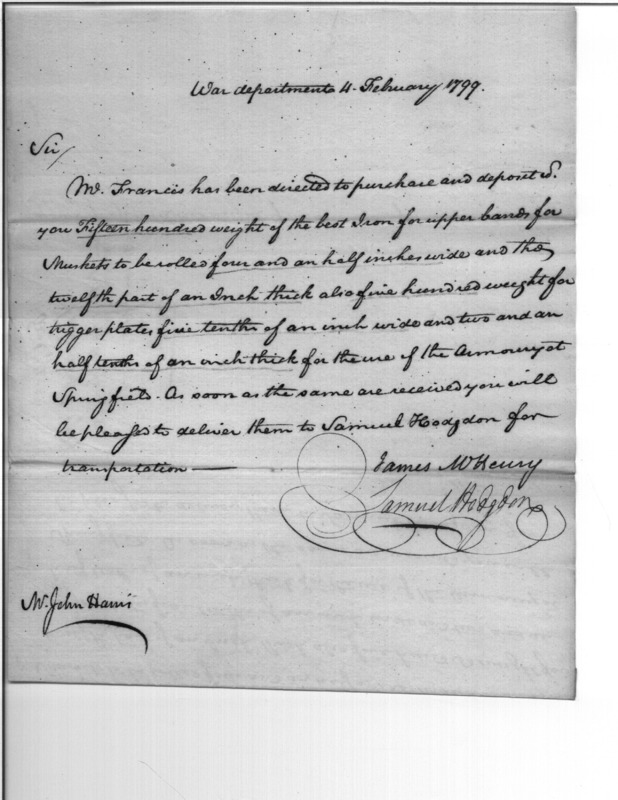 War department 4. February 1799.
Sir/
Mr. Francis has been directed to purchase and deposit wh.
you Fifteen hundred weight of the best Iron for upper bands for
Muskets to be rolled four and an half inches wide and the
twelfth part of an Inch thick also five hundred weight for
trigger plates five tenths of an inch wide and two and an
half tenths of an inch thick for the use of the Armoury at
Springfield. As soon as the same are received you will
be pleased to deliver them to Samuel Hodgdon for
transportation —
James McHenry
Samuel Hodgdon
Mr. John Harris